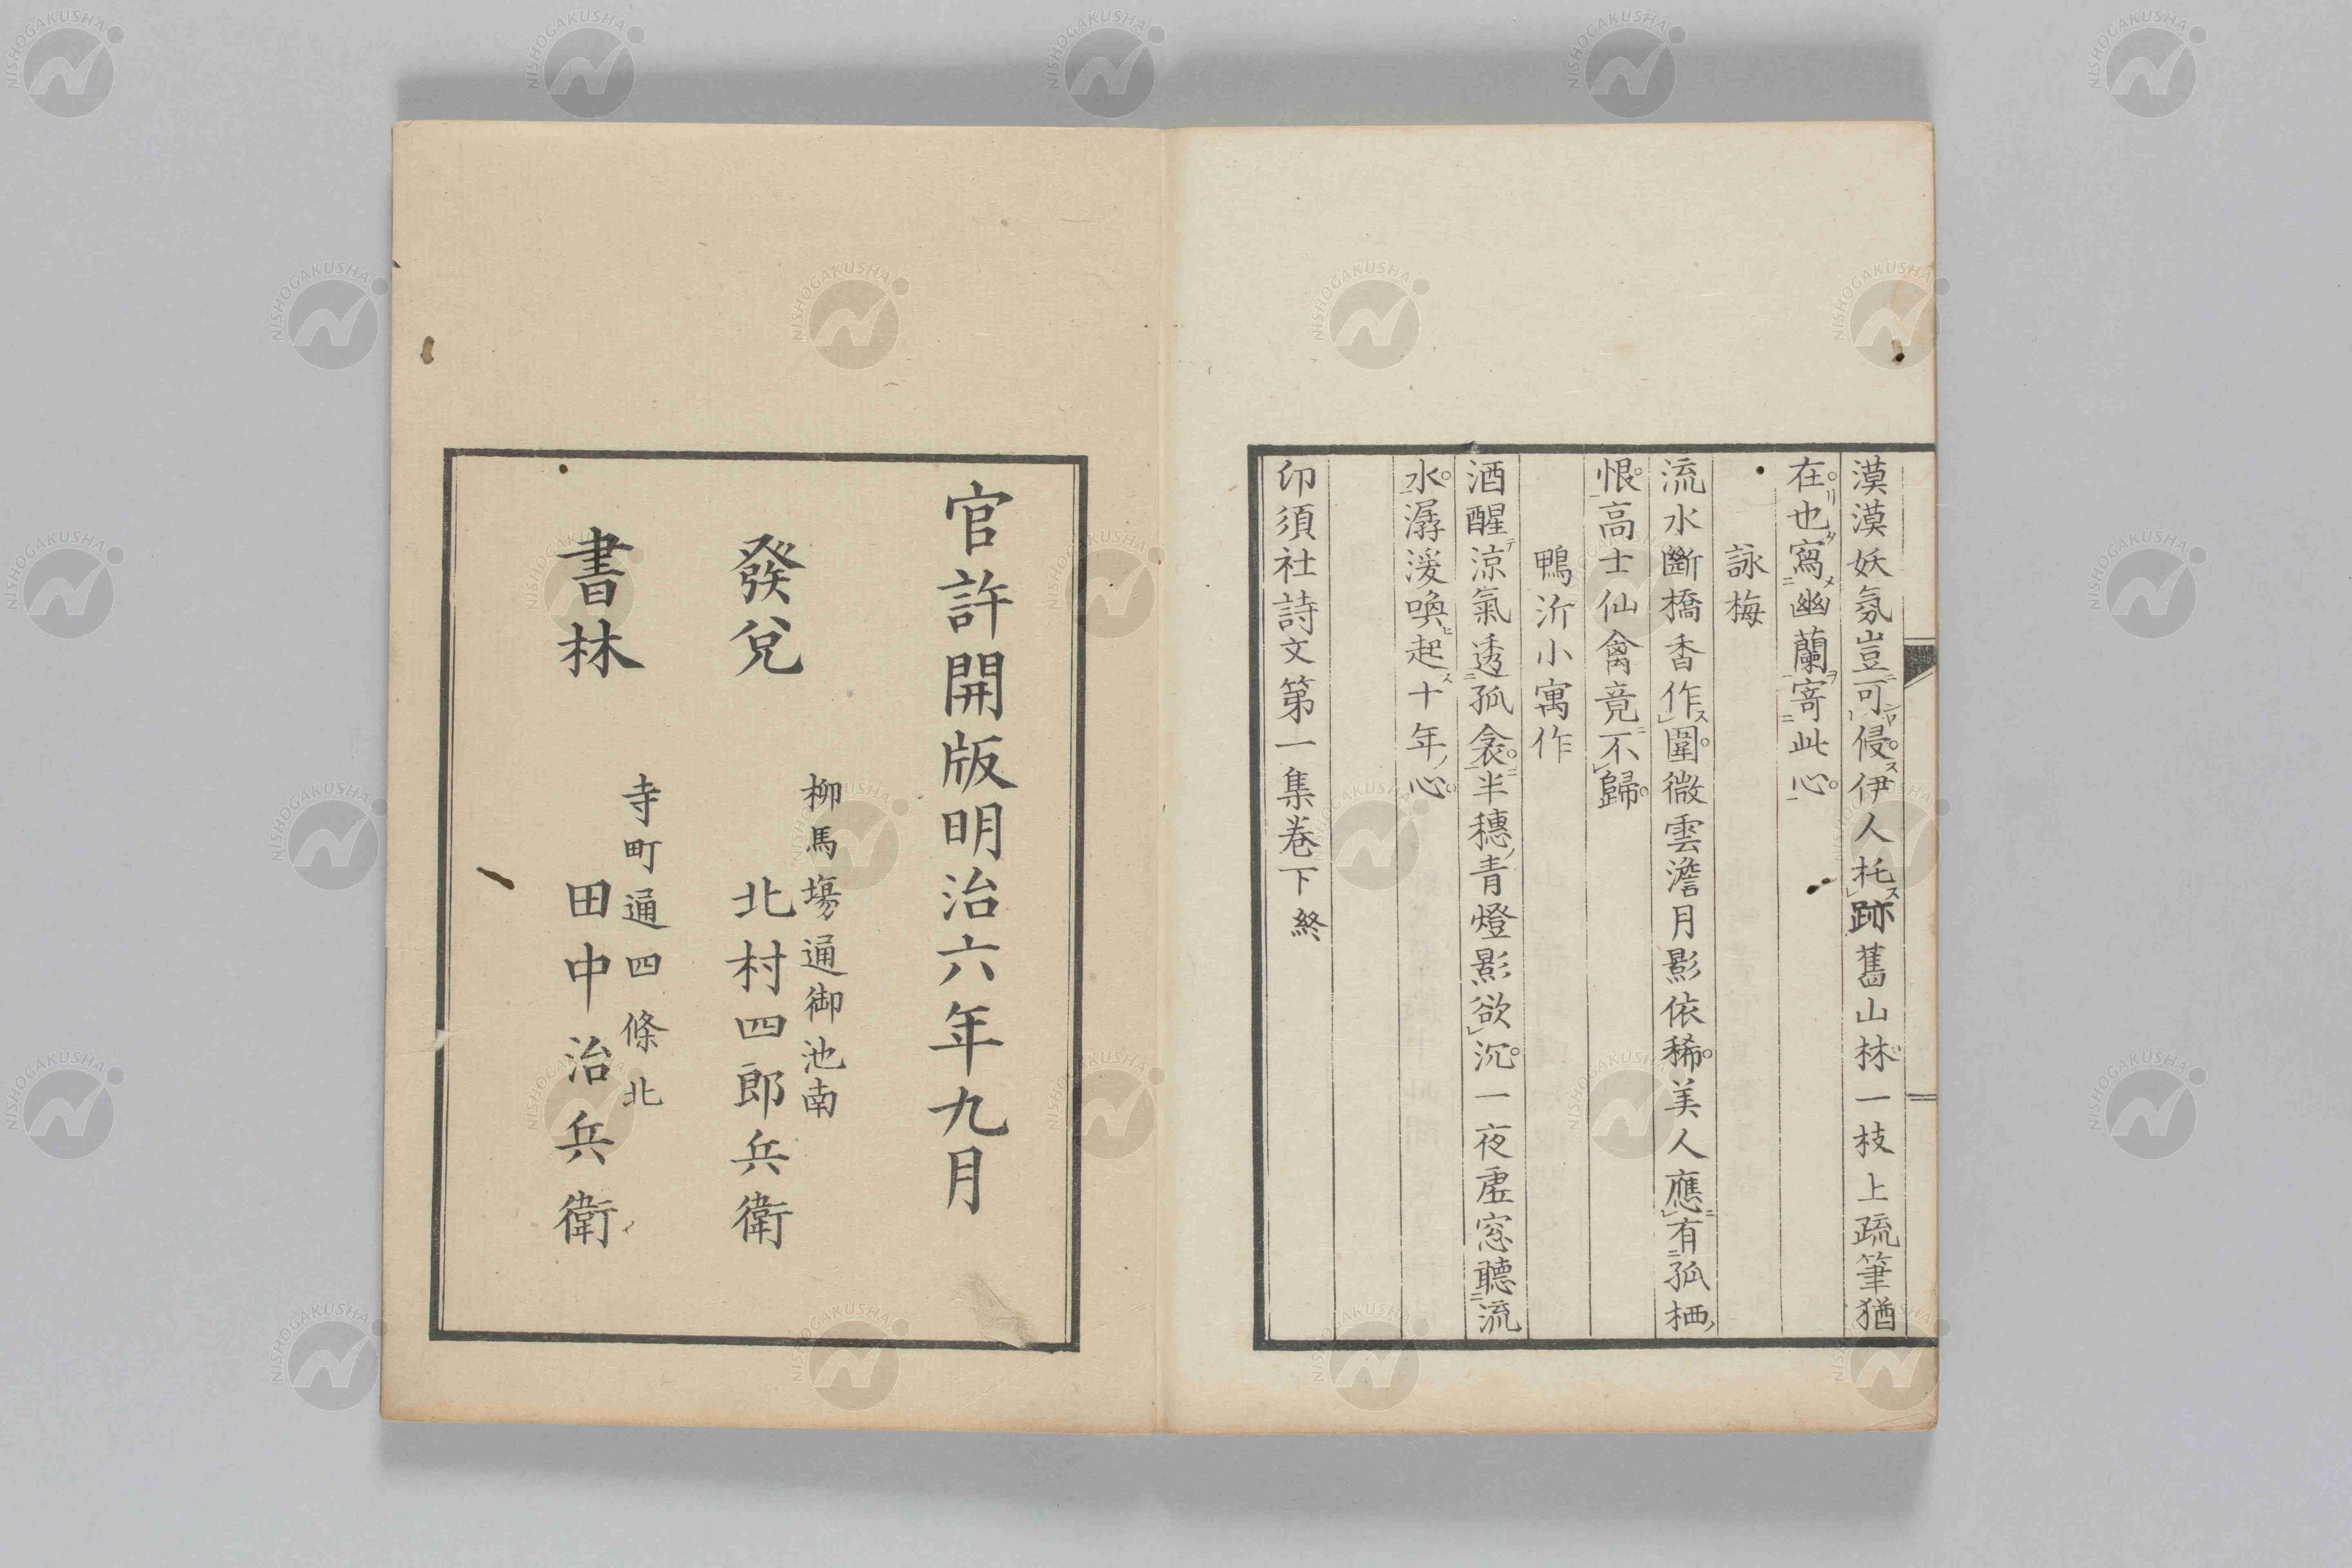 漠漠妖氛豈可侵伊人托跡舊山林一枝上疏筆猶
在也寫幽蘭寄此心
詠梅
流水斷橋香作圍微雲澹月影依稀美人應有孤栖
恨高士仙禽竟不歸
鴨沂小寓作
酒醒涼氣透孤衾半穗青燈影欲沉一夜虛窓聽流
水潺湲喚起十年心
卬須社詩文第一集卷下終
官許開版明治六年九月
發兌
柳馬塲通御池南
北村四郎兵衛
書林
寺町通四條北
田中治兵衛
NISHOGAKUSHA